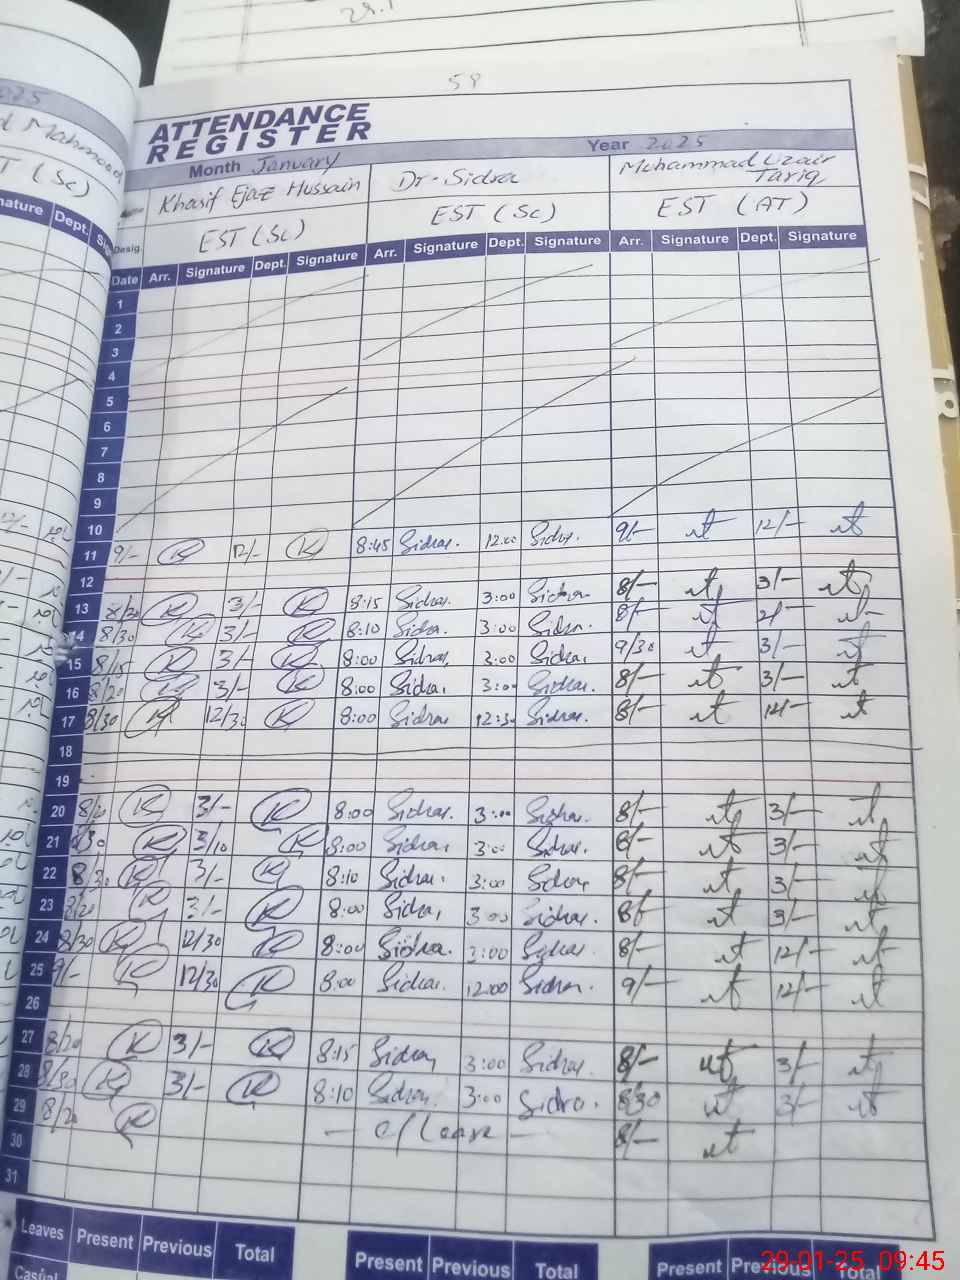 29.1
58
2025
d Mahmood
T (Sc)
nature Dept. Sig
ATTENDANCE
REGISTER
Month January Year 2025
Name Khasif Ejaz Hussain Dr. Sidra Muhammad Uzair Tariq
Desig. EST (Sc) EST (Sc) EST (AT)
Date Arr. Signature Dept. Signature Arr. Signature Dept. Signature Arr. Signature Dept. Signature
1
2
3
4
5
6
7
8
9
10
11 9/- K 12/- K 8:45 Sidra. 12:00 Sidra. 9/- ut 12/- ut
12
13 8/30 K 3/- K 8:15 Sidra. 3:00 Sidra 8/- ut 3/- ut
14 8/30 K 3/- K 8:10 Sidra. 3:00 Sidra. 8/- ut 2/- ut
15 8/15 K 3/- K 8:00 Sidra, 3:00 Sidra, 9/30 ut 3/- ut
16 8/20 K 3/- K 8:00 Sidra, 3:00 Sidra. 8/- ut 3/- ut
17 8/30 K 12/30 K 8:00 Sidra 12:30 Sidra. 8/- ut 12/- ut
18
19
20 K 3/- K 8:00 Sidra. 3:00 Sidra. 8/- ut 3/- ut
21 8/30 K 3/10 K 8:00 Sidra, 3:00 Sidra. 8/- ut 3/- ut
22 8/30 K 3/- K 8:10 Sidra. 3:00 Sidra 8/- ut 3/- ut
23 8/20 K 3/- K 8:00 Sidra, 3:00 Sidra. 8/- ut 3/- ut
24 8/30 K 12/30 K 8:00 Sidra. Sidra. 8/- ut 12/- ut
25 9/- K 12/30 K 8:00 Sidra. 12:00 Sidra. 9/- ut 12/- ut
26
27 8/20 K 3/- K 8:15 Sidra, 3:00 Sidra. 8/- ut 3/- ut
28 8/30 K 3/- K 8:10 Sidra. 3:00 Sidra. 8/30 ut 3/- ut
29 8/20 K — C/Leave — 8/- ut
30
31
Leaves Present Previous Total Present Previous Total Present Previous Total
Casual
29-01-25 09:45